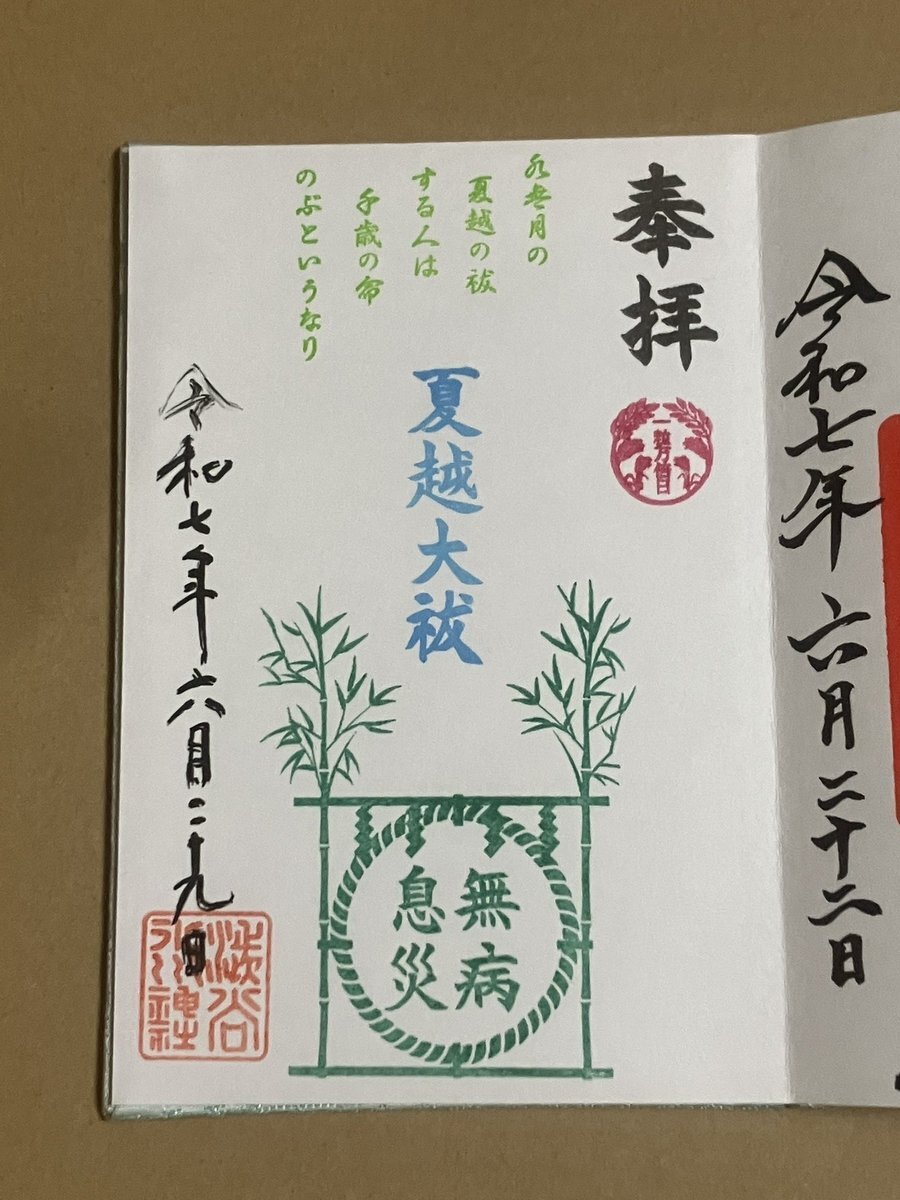 令和七年六月二十二日
奉拝
一粒万倍日
水無月の
夏越の祓
する人は
千歳の命
のぶというなり
夏越大祓
無病
息災
令和七年六月二十九日
澁谷
氷川神社